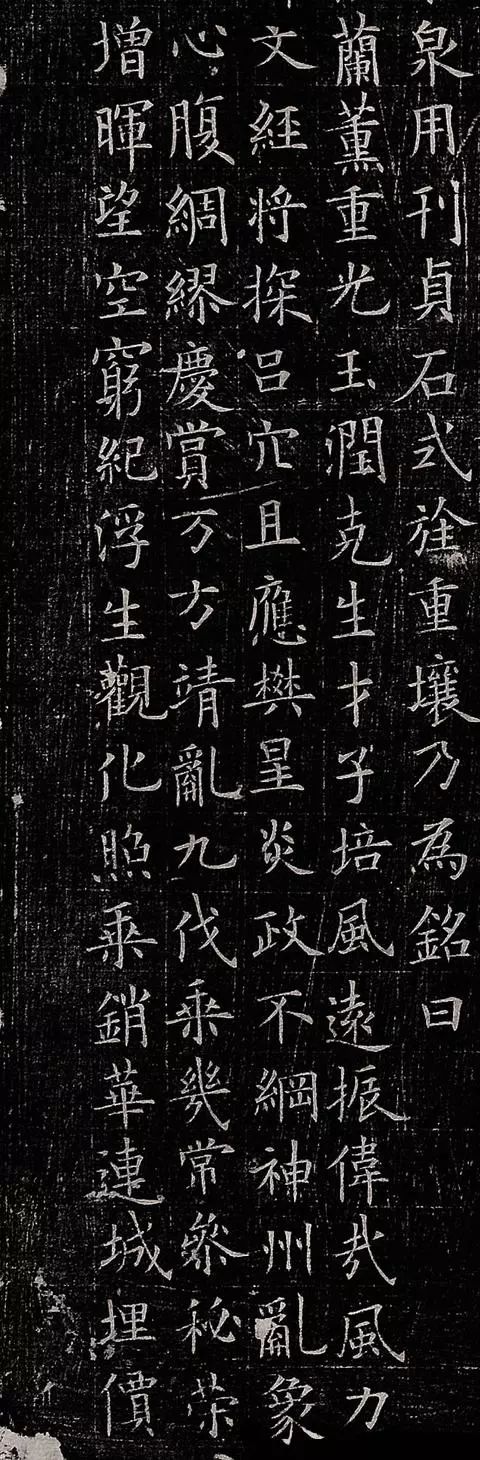 泉用刊貞石式旌重壤乃為銘曰
蘭薰重光玉潤克生才子培風遠振偉哉風力
文經將探呂穴且應樊星炎政不綱神州亂象
心腹綢繆慶賞万方靖亂九伐乘幾常參秘榮
增暉望空窮紀浮生觀化照乘銷華連城埋價